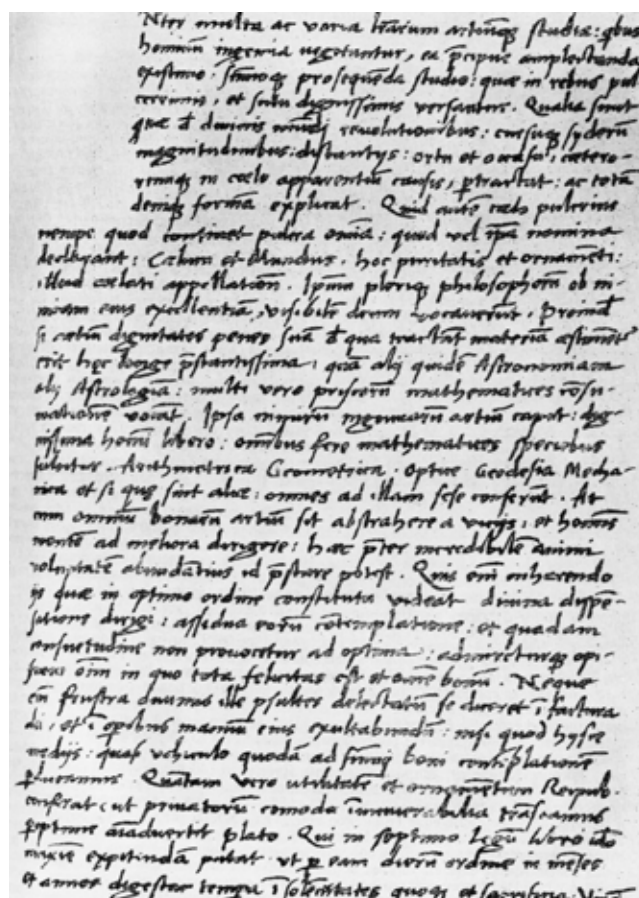 Nter multa ac varia lr̄arum artiumq3 studia: qbus
hominū ingenia vegetantur, ea p̄cipue amplectenda
existimo. sūmoq3 prosequēda studio: quæ in rebus pul
cerrimis, et scitu dignissimis versantur. Qualia sunt
quæ đ diuinis mūdj reuolutionibus: cursuq3 syderū
magnitudinibus: distantijs: ortu et occasu, cætero-
rumq3 in cœlo apparentiū causis, ꝑtractāt: ac totā
deniq3 formā explicat. Quid autē cœlo pulcrius
nempe quod continet pulcra omīa: quod vel ip̄a nomina
declarant: Cœlum et Mundus. hoc puritatis et ornamēti:
illud cœlati appellatiōn. Ipsum pleriq3 philosophorū ob ni-
miam eius excellentiā, visibilē deum vocauerūt. Proīnđ
si artiū dignitates penes suā đ qua tractāt materiā æstimētr
erit hęc longe p̄stantissima, quā alij quidē Astronomiam
alij Astrologiā: multi vero priscorū mathematices cōsu-
mationē vocāt. Ipsa nimirū ingenuarū artiū caput: dig-
nissima homī libero: omībus fere mathematices speciebus
fulcitur. Arithmetrica Geometrica. Optice Geodesia Mecha-
nica et si quę sint aliæ: omnes ad illam sese conferūt. At
cum omniū bonarū artiū sit abstrahere a vicijs: et homīs
mentē ad meliora dirigere: hæc p̄ter incredibilē animi
voluptatē abundātius id p̄stare potest. Quis em̄ inhærendo
ijs quæ in optimo ordine constituta videat diuina dispē-
satione dirigi: assidua eorū cōtemplatione: et quadam
consuetudine non prouocetur ad optima: admireturq3 opi-
ficem oīm in quo tota felicitas est et om̄e bonū. Neque
em̄ frustra diuinus ille psaltes delectatū se diceret ī factura
dei, et ī operibus manuū eius exultabundū: nisi quod hysce
medijs: quasi vehiculo quodā ad sūmi boni contēplationē
ꝑducamur. Quātam vero utilitatē et ornamentum Reipub.
conferat (ut priuatorū comoda īnumerabilia trāseamus
ꝑoptime aīaduertit plato. Qui in septimo Legū libro ideo
maxīe expetendā putat. ut ꝑ eam dierū ordine in mēses
et annos digestæ tempa ī solēnitates quoq3 et sacrificia